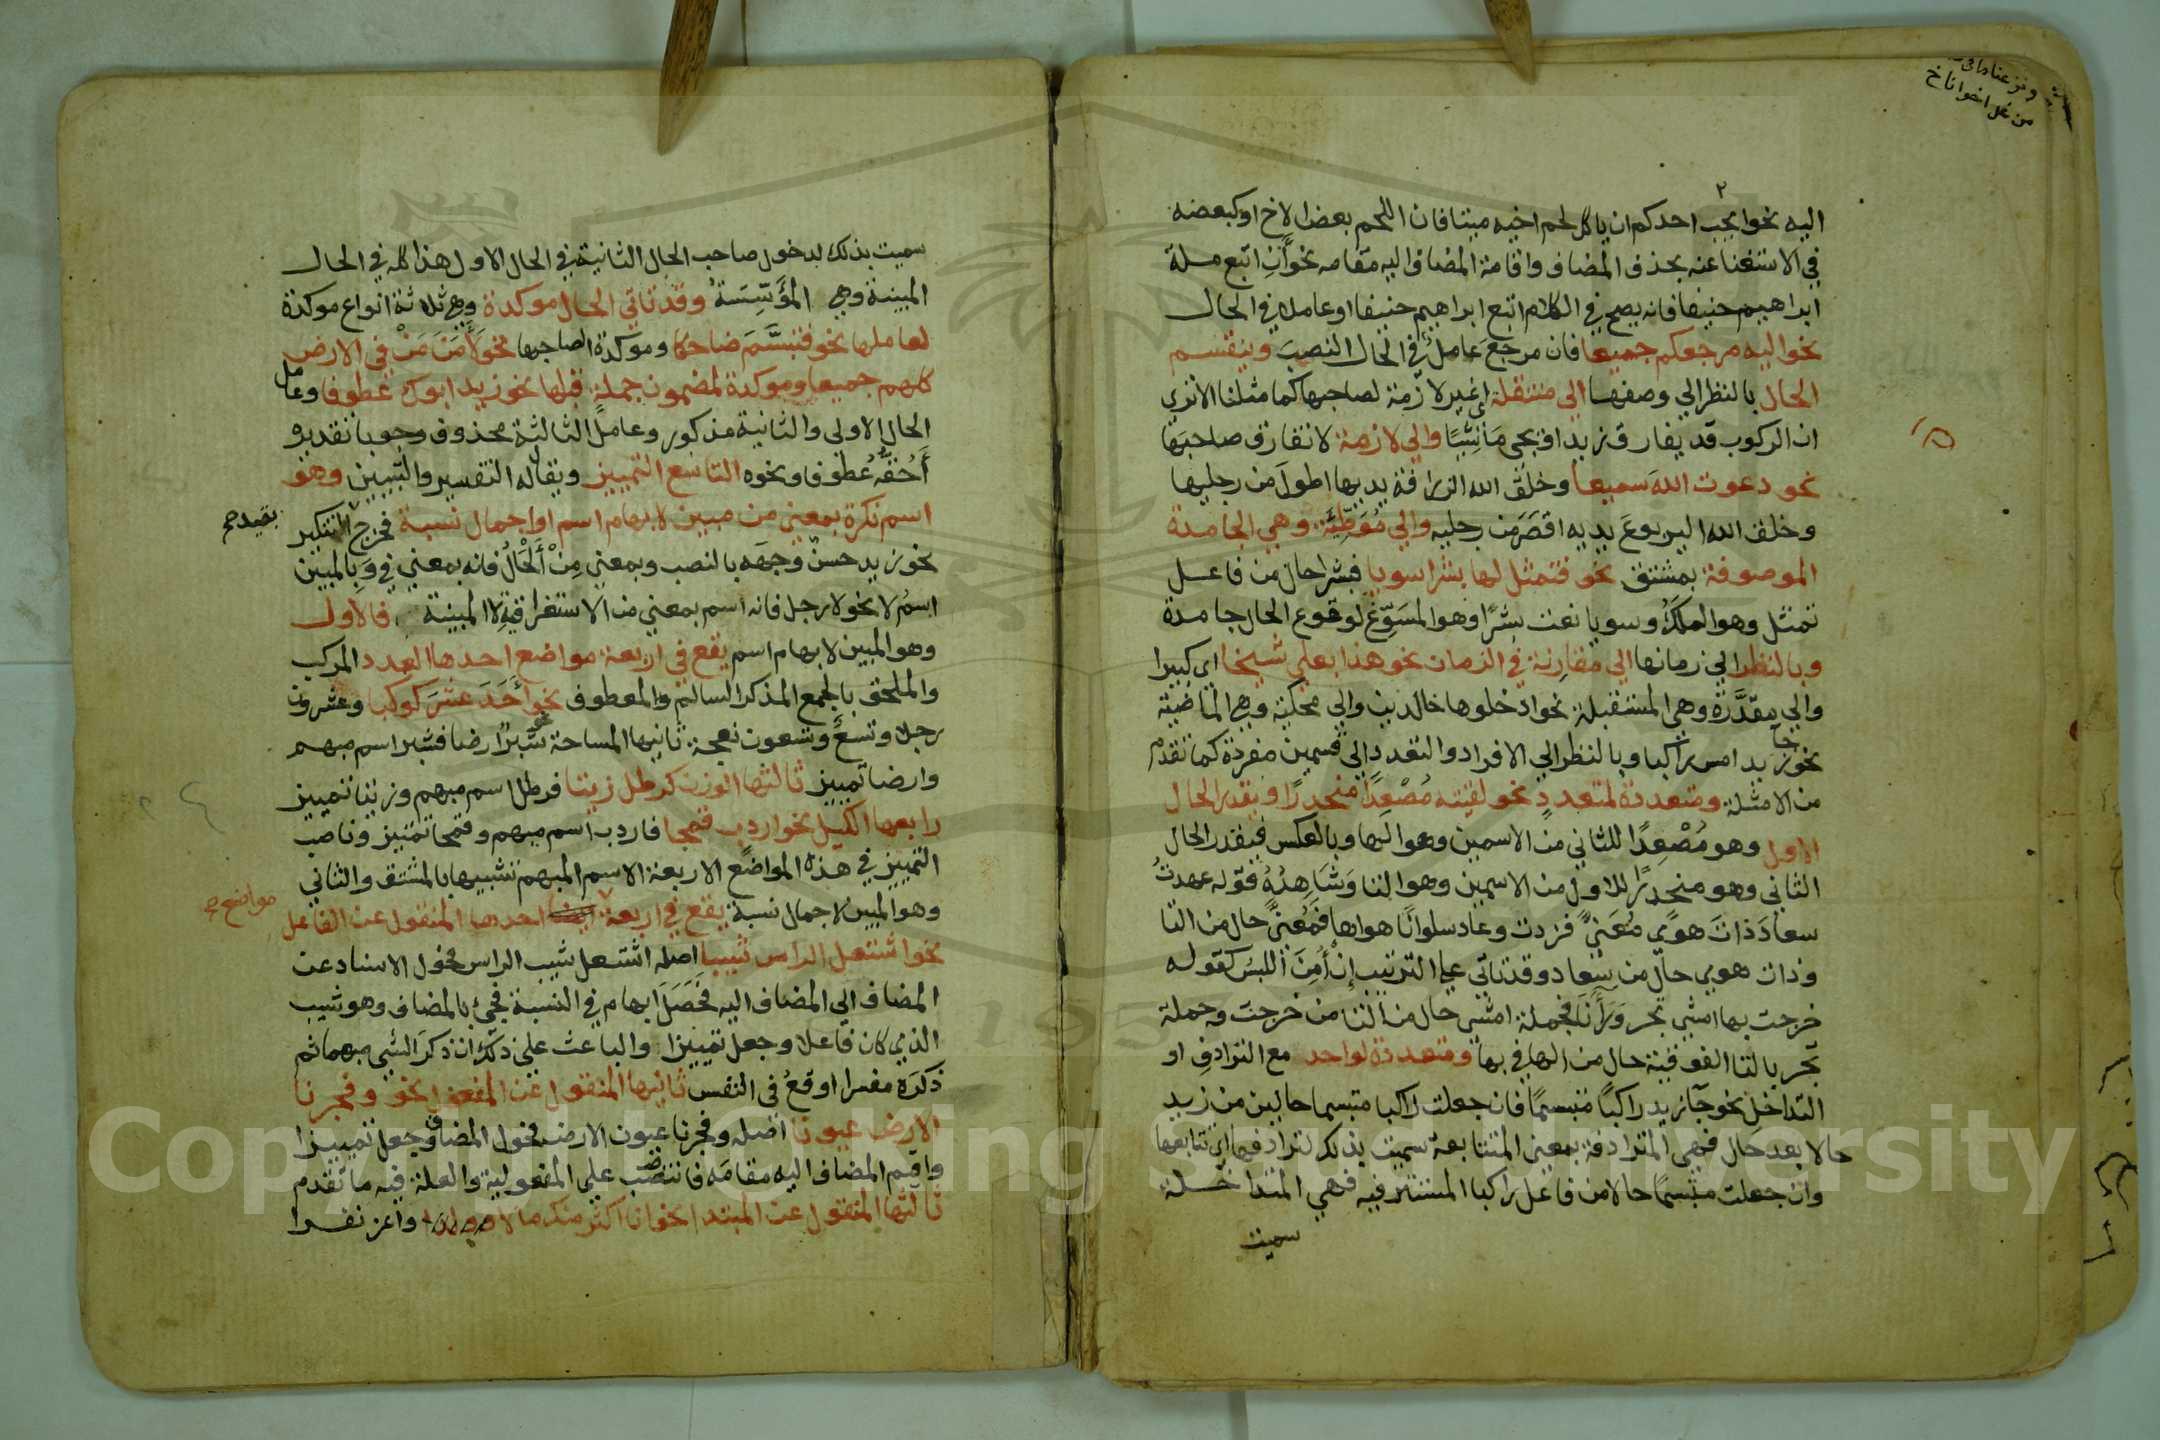 ونزعنا ما في
من غل اخوانا خ
٢
اليه نحو ايحب احدكم ان ياكل لحم اخيه ميتا فان اللحم بعض الاخ او كبعضه
في الاستغنا عنه بحذف المضاف واقامة المضاف اليه مقامه نحو أن اتبع ملة
ابراهيم حنيفا فانه يصح في الكلام اتبع ابراهيم حنيفا او عاملا في الحال
نحو اليه مرجعكم جميعا فان مرجع عامل في الحال النصب وينقسم
الحال بالنظر الي وصفها الي منتقلة اي غير لازمة لصاحبها كما مثلنا الا تري
ان الركوب قد يفارق زيدا فيجي ماشيا والي لازمة لا تفارق صاحبها
نحو دعوت الله سميعا وخلق الله الزرافة يديها اطول من رجليها
وخلق الله اليربوع يديه اقصر من رجليه والي موطئة وهي الجامدة
الموصوفة بمشتق نحو فتمثل لها بشرا سويا فبشرا حال من فاعل
تمثل وهو الملك وسويا نعت بشرا وهو المسوغ لوقوع الحال جامدة
وبالنظر الي زمانها الي مقارنة في الزمان نحو هذا بعلي شيخا اي كبيرا
والي مقدرة وهي المستقبلة نحو ادخلوها خالدين والي محكية وهي الماضية
نحو جا زيد امس راكبا وبالنظر الي الافراد والتعدد الي قسمين مفردة كما تقدم
من الامثلة ومتعددة لمتعدد نحو لقيته مصعدا منحدرا ويقدر الحال
الاول وهو مصعدا للثاني من الاسمين وهو الها وبالعكس فيقدر الحال
الثاني وهو منحدرا للاول من الاسمين وهو التا وشاهده قوله عهدت
سعاد ذات هوي معني فزدت وعاد سلوانا هواها فمعني حال من التا
وذات هوي حال من سعاد وقد تاتي علي الترتيب إن أمن اللبس كقوله
خرجت بها امشي تجر وراءنا فجملة امشي حال من التا من خرجت وجملة
تجر بالتا الفوقية حال من الها في بها ومتعددة لواحد مع الترادف او
التداخل نحو جآ زيد راكبا متبسما فان جعلت راكبا متبسما حالين من زيد
حالا بعد حال فهي المترادفة بمعني المتتابعة سميت بذلك لترادفها اي تتابعها
وان جعلت متبسما حالا من فاعل راكبا المستتر فيه فهي المتداخلة
سميت
سميت بذلك لدخول صاحب الحال الثانية في الحال الاول هذا كله في الحال
المبينة وهي المؤسسة وقد تاتي الحال موكدة وهي ثلاثة انواع موكدة
لعاملها نحو فتبسم ضاحكا وموكدة لصاحبها نحو لآمن من في الارض
كلهم جميعا وموكدة لمضمون جملة قبلها نحو زيد ابوك عطوفا وعامل
الحال الاولي والثانية مذكور وعامل الثالثة محذوف وجوبا تقديره
أحقه عطوفا ونحوه التاسع التمييز ويقال له التفسير والتبيين وهو
اسم نكرة بمعني من مبين لابهام اسم او اجمال نسبة فخرج بقيد التنكير
نحو زيد حسن وجهه بالنصب وبمعني من الحال فانه بمعني في وبالمبين
اسم لا نحو لا رجل فانه اسم بمعني من الاستغراقية لا المبينة فالاول
وهو المبين لابهام اسم يقع في اربعة مواضع احدها العدد المركب
والملحق بالجمع المذكر السالم والمعطوف نحو احد عشر كوكبا وعشرون
رجلا وتسع وتسعون نعجة ثانيها المساحة نحو شبر ارضا فشبر اسم مبهم
وارضا تمييز ثالثها الوزن كرطل زيتا فرطل اسم مبهم وزيتا تمييز
رابعها الكيل نحو اردب قمحا فاردب اسم مبهم وقمحا تمييز وناصب
التمييز في هذه المواضع الاربعة الاسم المبهم تشبيها بالمشتق والثاني
وهو المبين لاجمال نسبة يقع في اربعة مواضع احدها المنقول عن الفاعل
نحو اشتعل الراس شيبا اصله اشتعل شيب الراس فحول الاسناد عن
المضاف الي المضاف اليه فحصل ابهام في النسبة فجئ بالمضاف وهو شيب
الذي كان فاعلا وجعل تمييزا والباعث علي ذلك ان ذكر الشي مبهما ثم
ذكره مفسرا اوقع في النفس ثانيها المنقول عن المفعول نحو وفجرنا
الارض عيونا اصله وفجرنا عيون الارض فحول المضاف وجعل تمييزا
واقيم المضاف اليه مقامه فانتصب علي المفعولية والعلة فيه ما تقدم
ثالثها المنقول عن المبتدا نحو انا اكثر منك مالا واعز نفرا
Copyright © King Saud University
1957